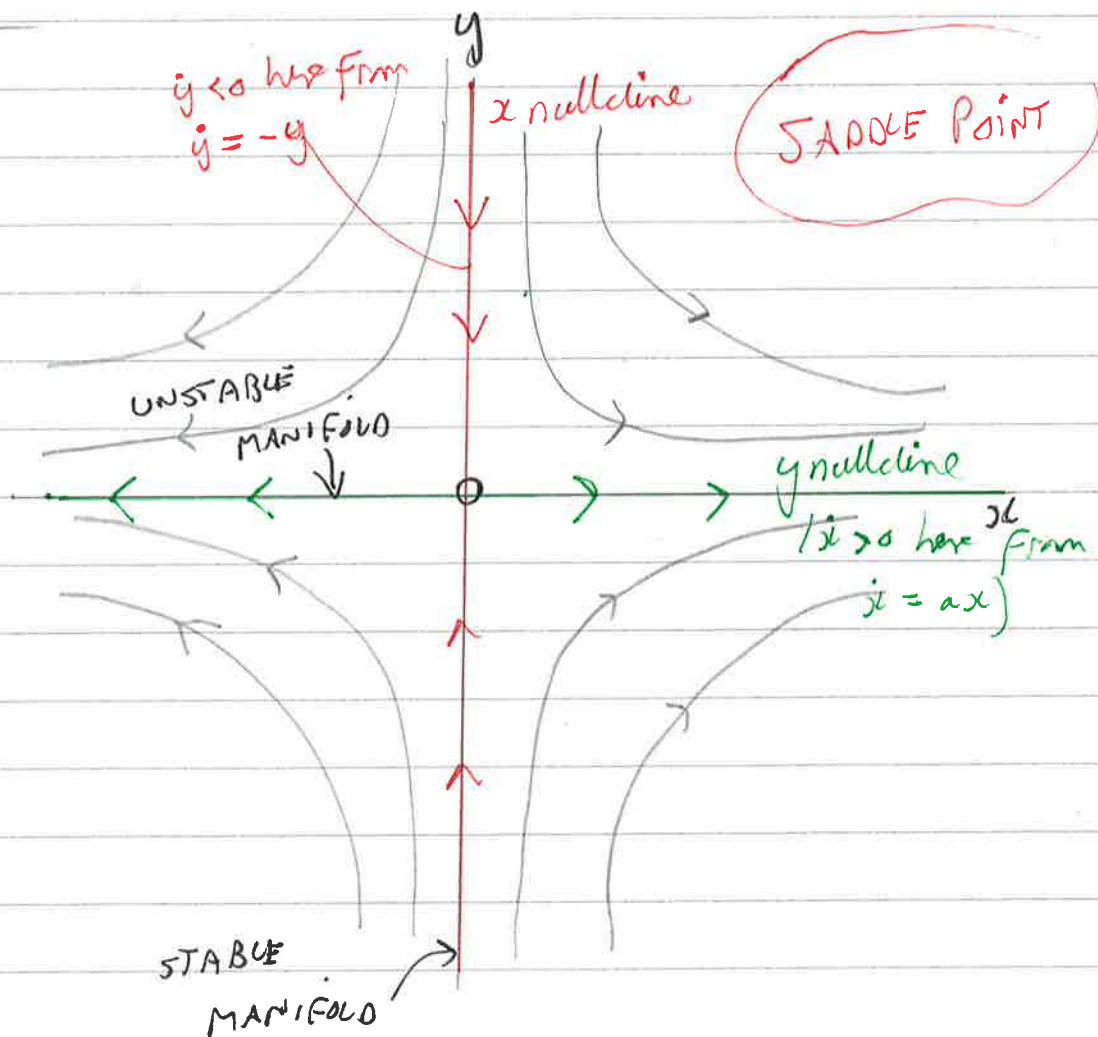 y
ẏ<0 here from
ẏ = -y
x nullcline
SADDLE POINT
UNSTABLE
MANIFOLD
y nullcline
x
(ẋ >0 here from
ẋ = ax)
STABLE
MANIFOLD